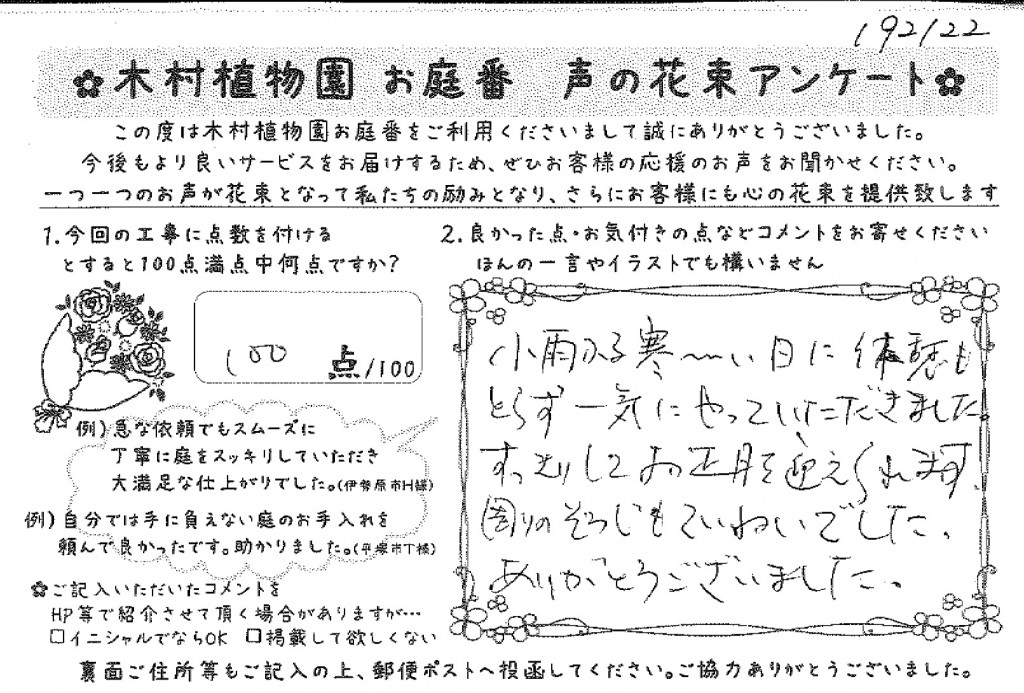 192122
✿木村植物園 お庭番 声の花束アンケート✿
この度は木村植物園お庭番をご利用くださいまして誠にありがとうございました。
今後もより良いサービスをお届けするため、ぜひお客様の応援のお声をお聞かせください。
一つ一つのお声が花束となって私たちの励みとなり、さらにお客様にも心の花束を提供致します
1.今回の工事に点数を付ける
とすると100点満点中何点ですか?
100 点/100
例)急な依頼でもスムーズに
丁寧に庭をスッキリしていただき
大満足な仕上がりでした。(伊勢原市H様)
例)自分では手に負えない庭のお手入れを
頼んで良かったです。助かりました。(平塚市T様)
✿ご記入いただいたコメントを
HP等で紹介させて頂く場合がありますが…
□イニシャルでならOK □掲載して欲しくない
2.良かった点・お気付きの点などコメントをお寄せください
ほんの一言やイラストでも構いません
小雨ふる寒〜い日に休憩も
とらず一気にやっていただきました。
すっきりしてお正月を迎えられます。
周りのそうじもていねいでした。
ありがとうございました。
裏面ご住所等もご記入の上、郵便ポストへ投函してください。ご協力ありがとうございました。